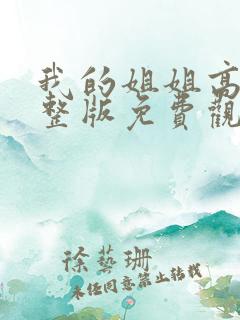 我的姐姐高
整版免費觀
徐藝珊
未经同意禁止转载